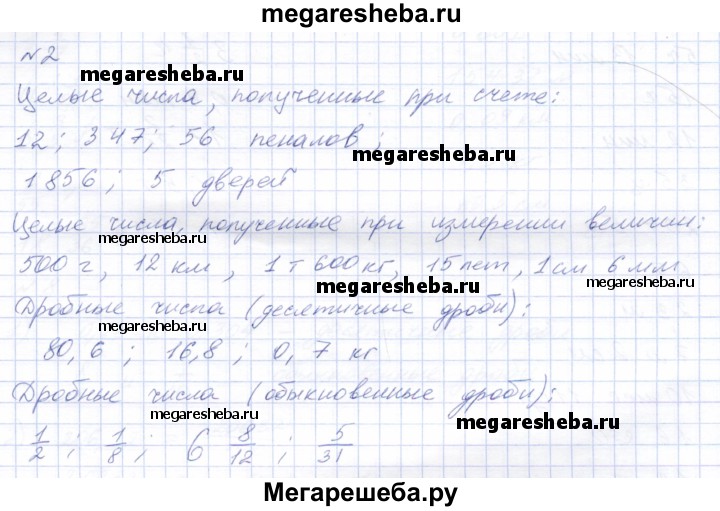 megaresheba.ru
№2
megaresheba.ru
Целые числа, полученные при счете:
12; 347; 56 пеналов;
megaresheba.ru
1856; 5 дверей
Целые числа, полученные при измерении величин:
megaresheba.ru
500 г, 12 км, 1 т 600 кг, 15 лет, 1 см 6 мм
Дробные числа (десятичные дроби):
megaresheba.ru
80,6; 16,8; 0,7 кг
Дробные числа (обыкновенные дроби):
megaresheba.ru
megaresheba.ru
1/2; 1/8; 6 8/12; 5/31
Мегарешеба.ру